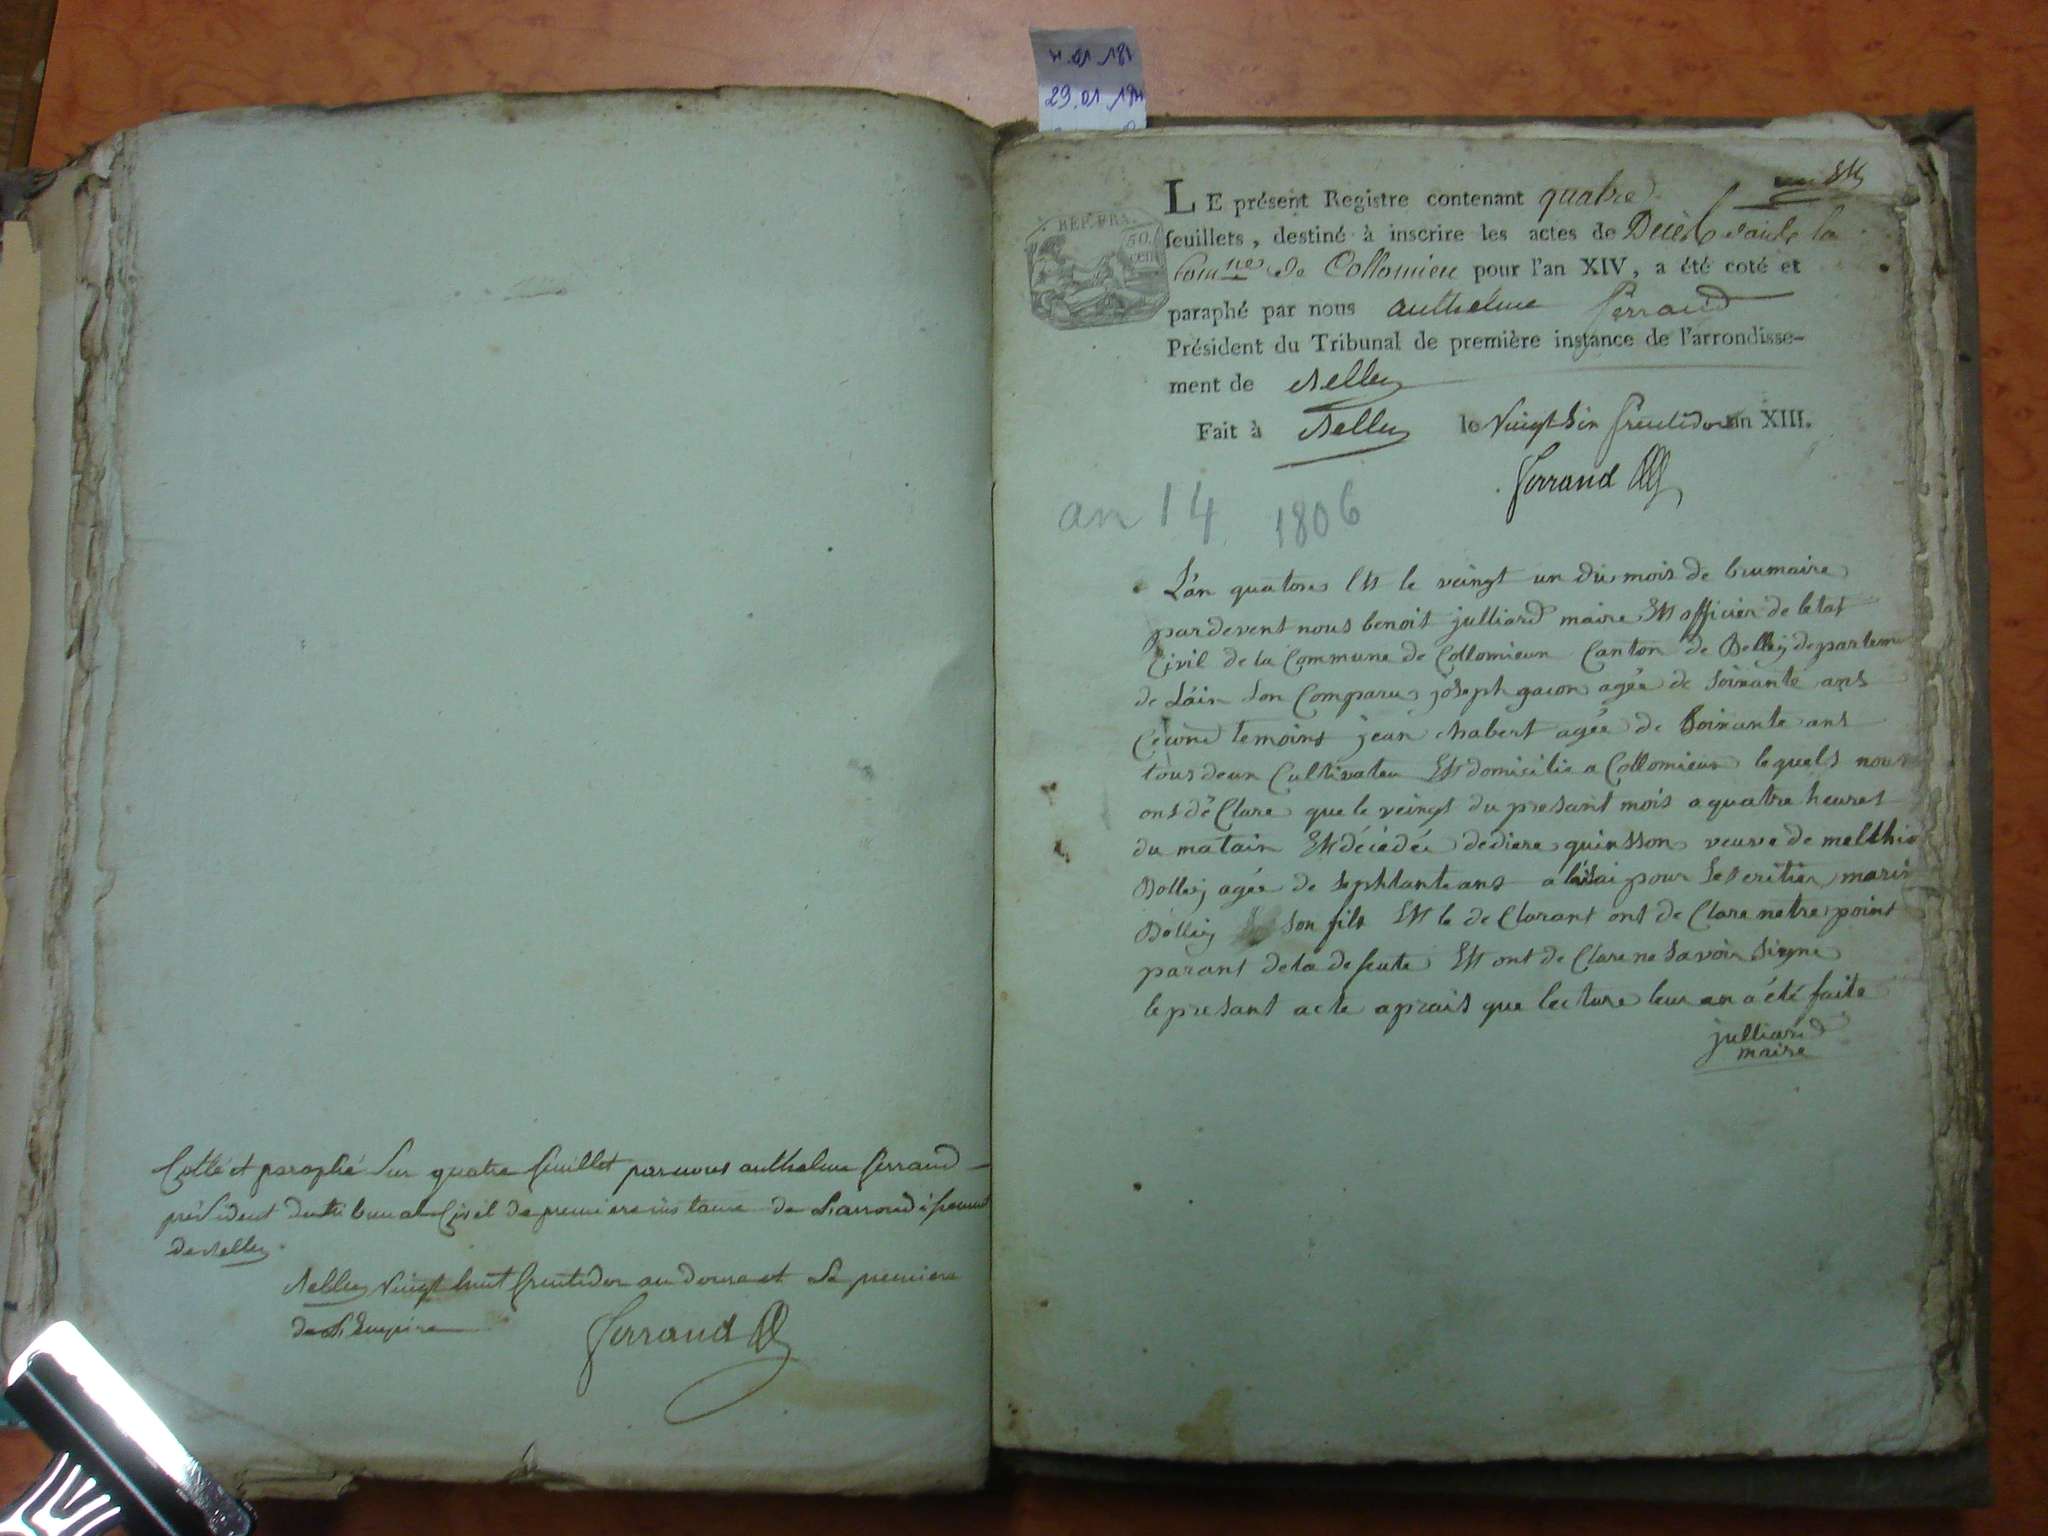 29.01
Cotté et paraphé sur quatre feuillet par nous anthelme ferrand
président du tribunal Civil de premiere instance de L'arrondissement
de Belley
Belley vingt huit fructidor an douze et Le premiere
de L'Empire
ferrand
REP. FRA.
50. cen
LE présent Registre contenant quatre
feuillets, destiné à inscrire les actes de Décès dans la
Comne de Collomieu pour l'an XIV, a été coté et
paraphé par nous anthelme ferrand
Président du Tribunal de première instance de l'arrondisse-
ment de Belley
Fait à Belley le vingt six fructidor an XIII.
ferrand
an 14 1806
L'an quatorse Et le veingt un du mois de brumaire
pardevent nous benoit julliard maire Et officier de letat
Civil de la Commune de Collomieux Canton de Belley departeme
de L'ain son Comparus joseph gacon agée de soixante ans
temoins jean chabert agée de soixante ans
tous deux Cultivateu Et domicilie a Collomieux lequels nous
ons dé Clare que le veingt du presant mois a quatre heures
du matain Et décédée dediere quinsson veuve de melthio
Bolley agée de sephtante ans a laisai pour ses eritier maris
Bolley son fils Et le de Clarant ont de Clare netre point
parant de la defeute Et ont de Clare ne savoir signe
le presant acte aprais que lecture leur an a été faite
julliard
maire